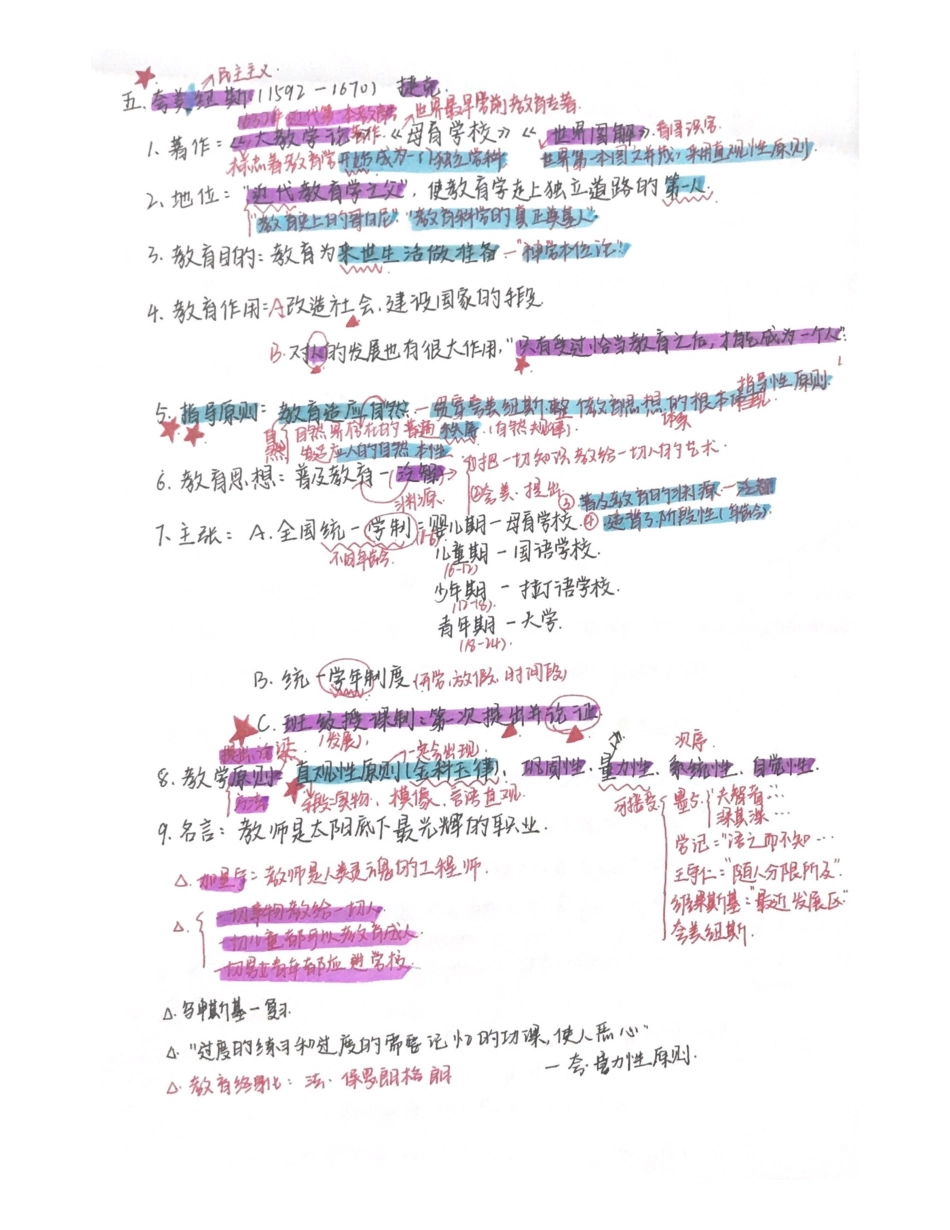 民主主义.
五.夸美纽斯(1592-1670) 捷克.
1632年近代第一本教育学著作. 世界最早学前教育专著
1.著作:《大教学论》《母育学校》《世界图解》.看图识字.
标志着教育学开始成为一门独立学科 世界第一本图文并茂,采用直观性原则.
2.地位:"近代教育学之父",使教育学走上独立道路的第一人.
"教育史上的哥白尼""教育科学的真正奠基人".
3.教育目的:教育为来世生活做准备-"神学本位论".
4.教育作用:A改造社会,建设国家的手段
B.对人的发展也有很大作用,"只有受过恰当教育之后,才能成为一个人".
指导性原则.
5.指导原则:教育适应自然-贯穿夸美纽斯整个教育思想的根本
自然 自然界存在的普遍秩序.(自然规律). 体系
适应人的自然本性
6.教育思想:普及教育-(泛智) ①把一切知识教给一切人的艺术.
渊源 ②夸美.提出. ③普及教育的渊源-泛智
7.主张:A.全国统一学制:婴儿期-母育学校. ④违背了阶段性(年龄)
不同年龄 儿童期-国语学校.
(6-12)
少年期-拉丁语学校.
(12-18).
青年期-大学.
(18-24)
B.统一学年制度(开学,放假,时间段)
C.班级授课制:第一次提出并论证
提出论证 (发展). 一定会出现. 次序.
8.教学原则 直观性原则(金科玉律),巩固性,量力性,系统性,自觉性.
手段:实物、模像、言语直观 可接受 墨子:"夫智者…
深其深…
9.名言:教师是太阳底下最光辉的职业. 学记:"语之而不知…
△.加里宁:教师是人类灵魂的工程师. 王守仁:"随人分限所及".
维果斯基:"最近发展区"
△.一切事物教给一切人. 夸美纽斯.
一切儿童都可以教育成人.
一切男女青年都应进学校.
△.乌申斯基-复习.
△."过度的练习和过度的需要记忆的功课,使人恶心"
-夸.量力性原则.
△.教育终身化:法.保罗朗格朗